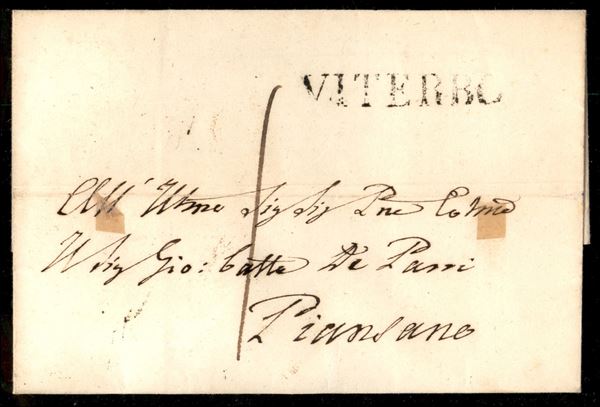 VITERBO
1
All' Illmo Sig Sig Pne Colmo
Il Sig Gio: Batta De Parri
Piansano